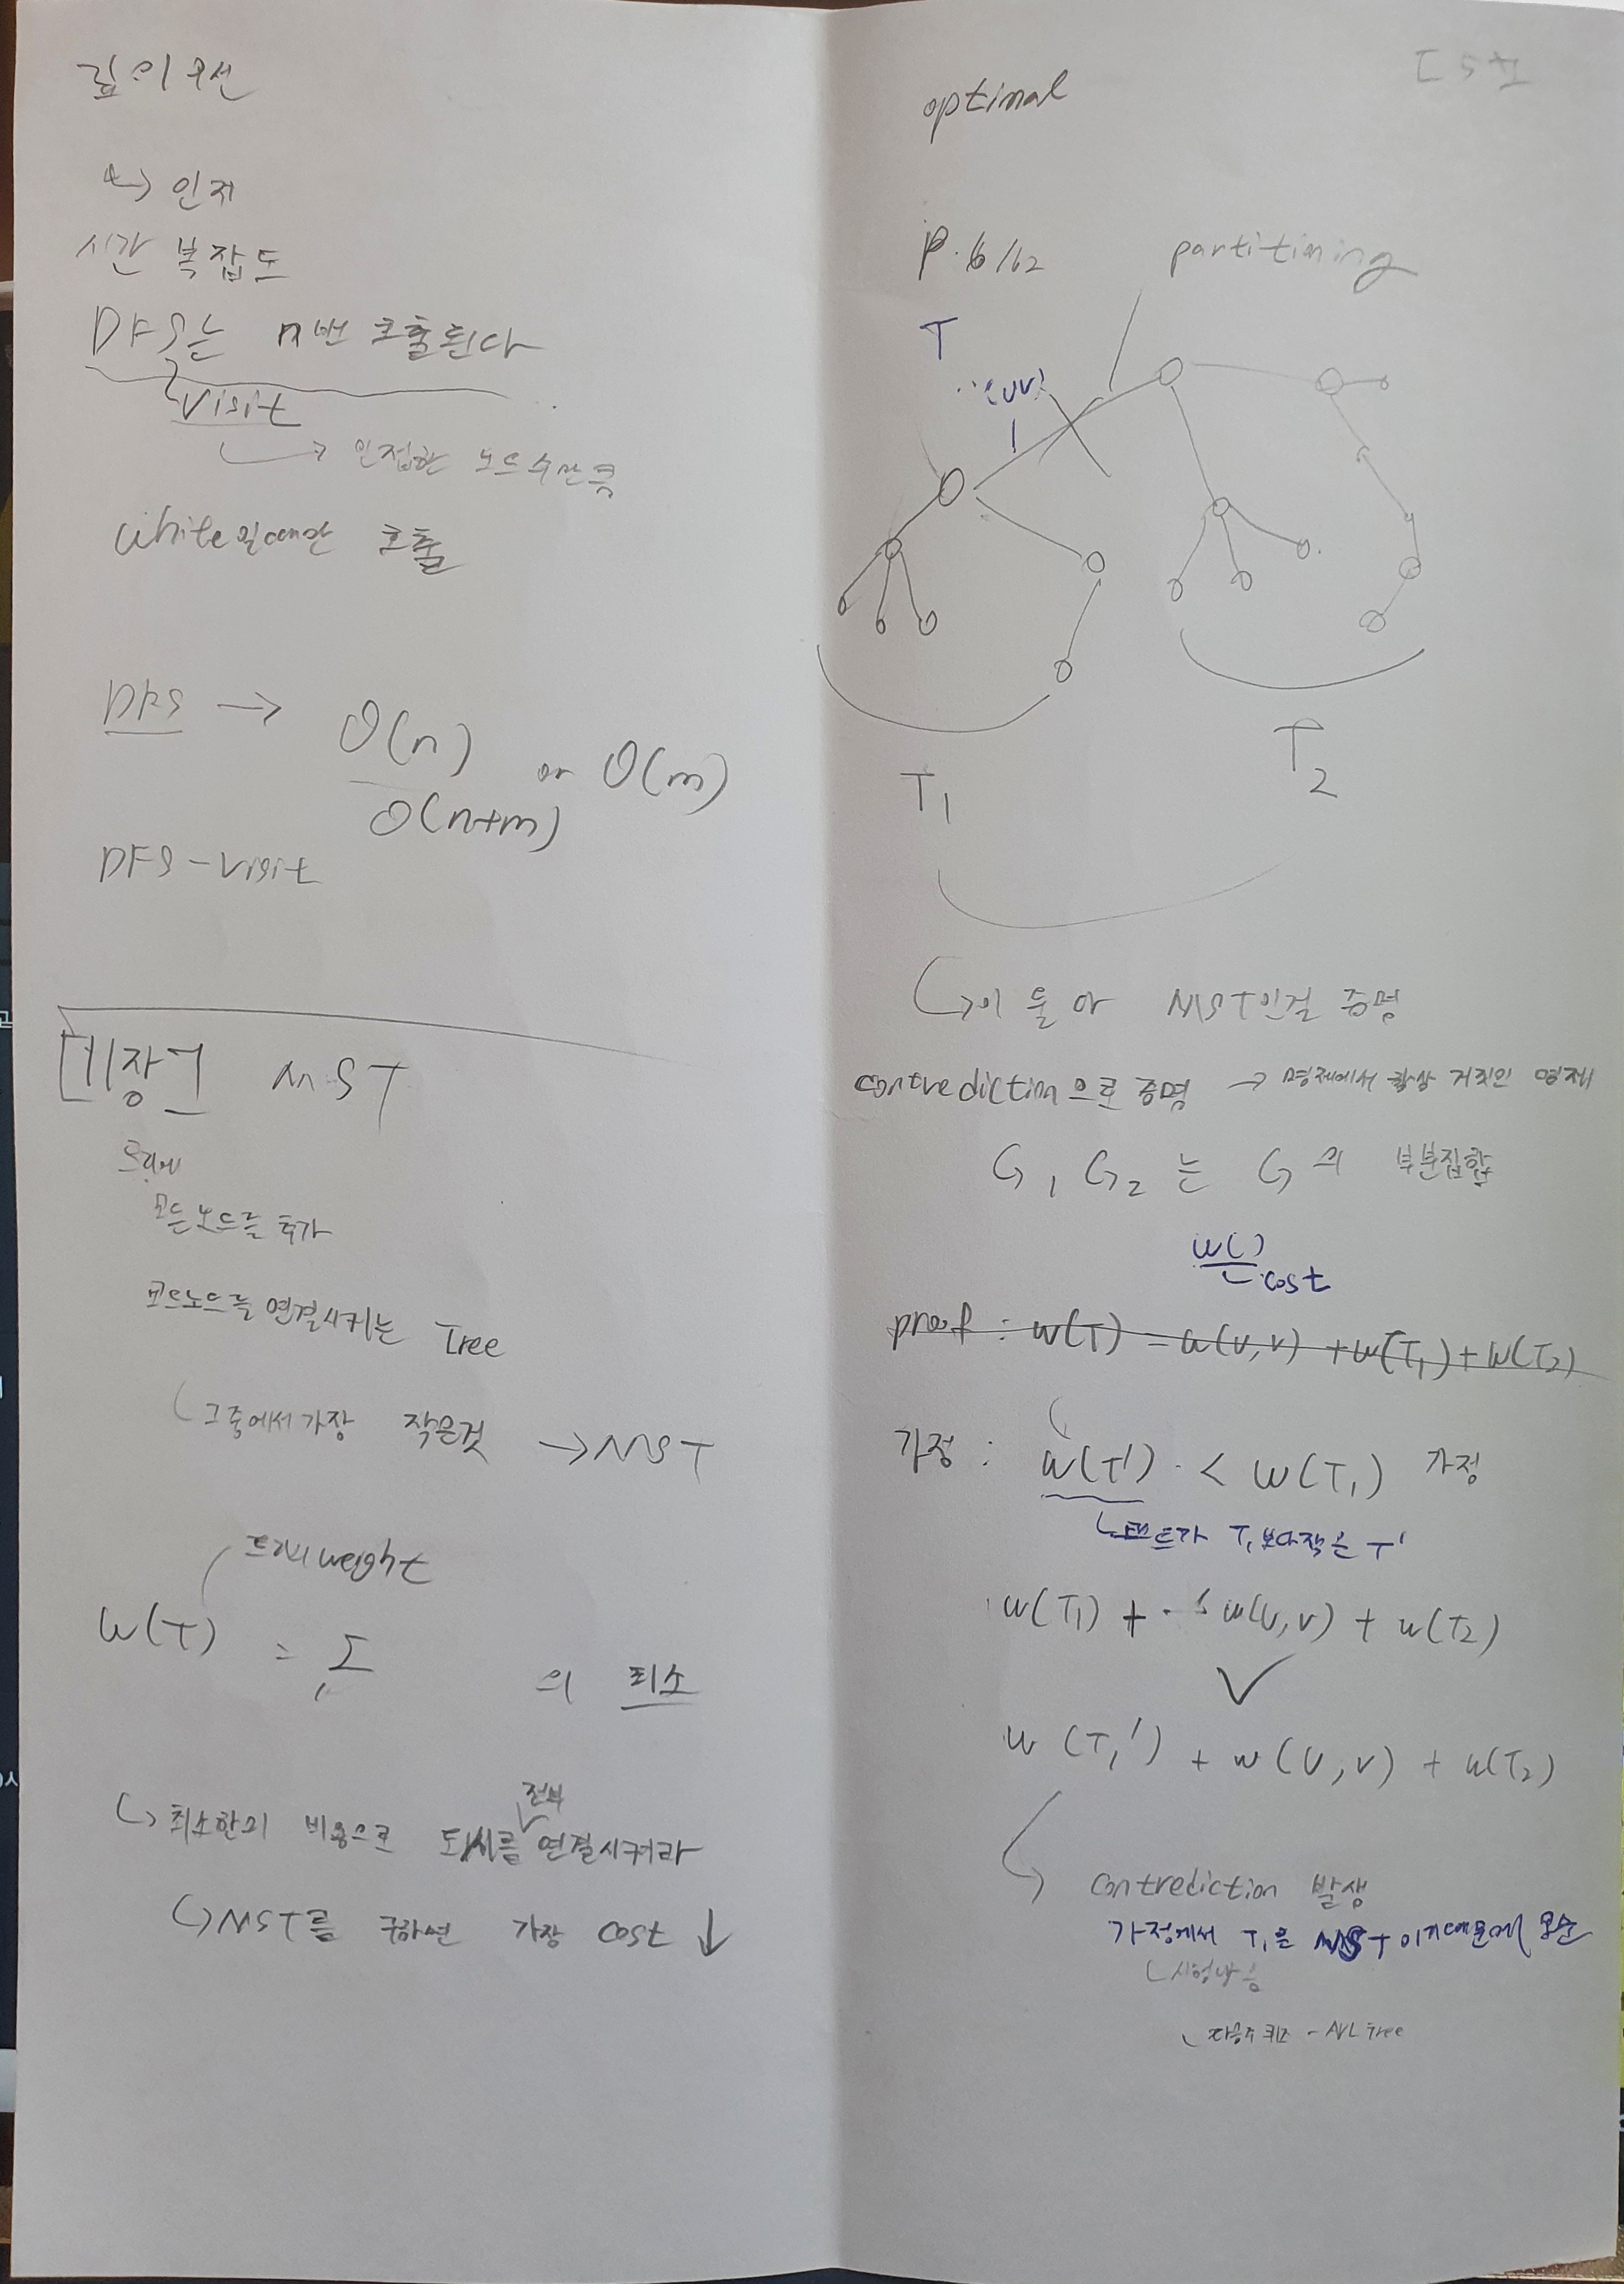 깊이우선
↳ 인지
시간 복잡도
DFS는 n번 호출된다
visit
→ 인접한 노드수만큼
white일때만 호출
DFS → O(n) or O(m)
O(n+m)
DFS-visit
[11장] MST
모든노드를 추가
모든노드를 연결시키는 Tree
그중에서가장 작은것 → MST
트리의 weight
w(T) = Σ 의 최소
전부
↳ 최소한의 비용으로 도시를 연결시켜라
↳ MST를 구하면 가장 cost ↓
optimal
P.6/62 partitiming
T
(u,v)
T1
T2
↳ 이 둘 다 MST인걸 증명
contrediction으로 증명 → 명제에서 항상 거짓인 명제
G1 G2 는 G의 부분집합
w( )
cost
proof : w(T) = w(u,v) + w(T1) + w(T2)
가정 : w(T') < w(T1) 가정
T1보다작은 T'
w(T1) + w(u,v) + w(T2)
∨
w(T1') + w(u,v) + w(T2)
↳ contrediction 발생
가정에서 T1은 MST이기때문에 모순
시험나옴
다음주 퀴즈 - AVL tree